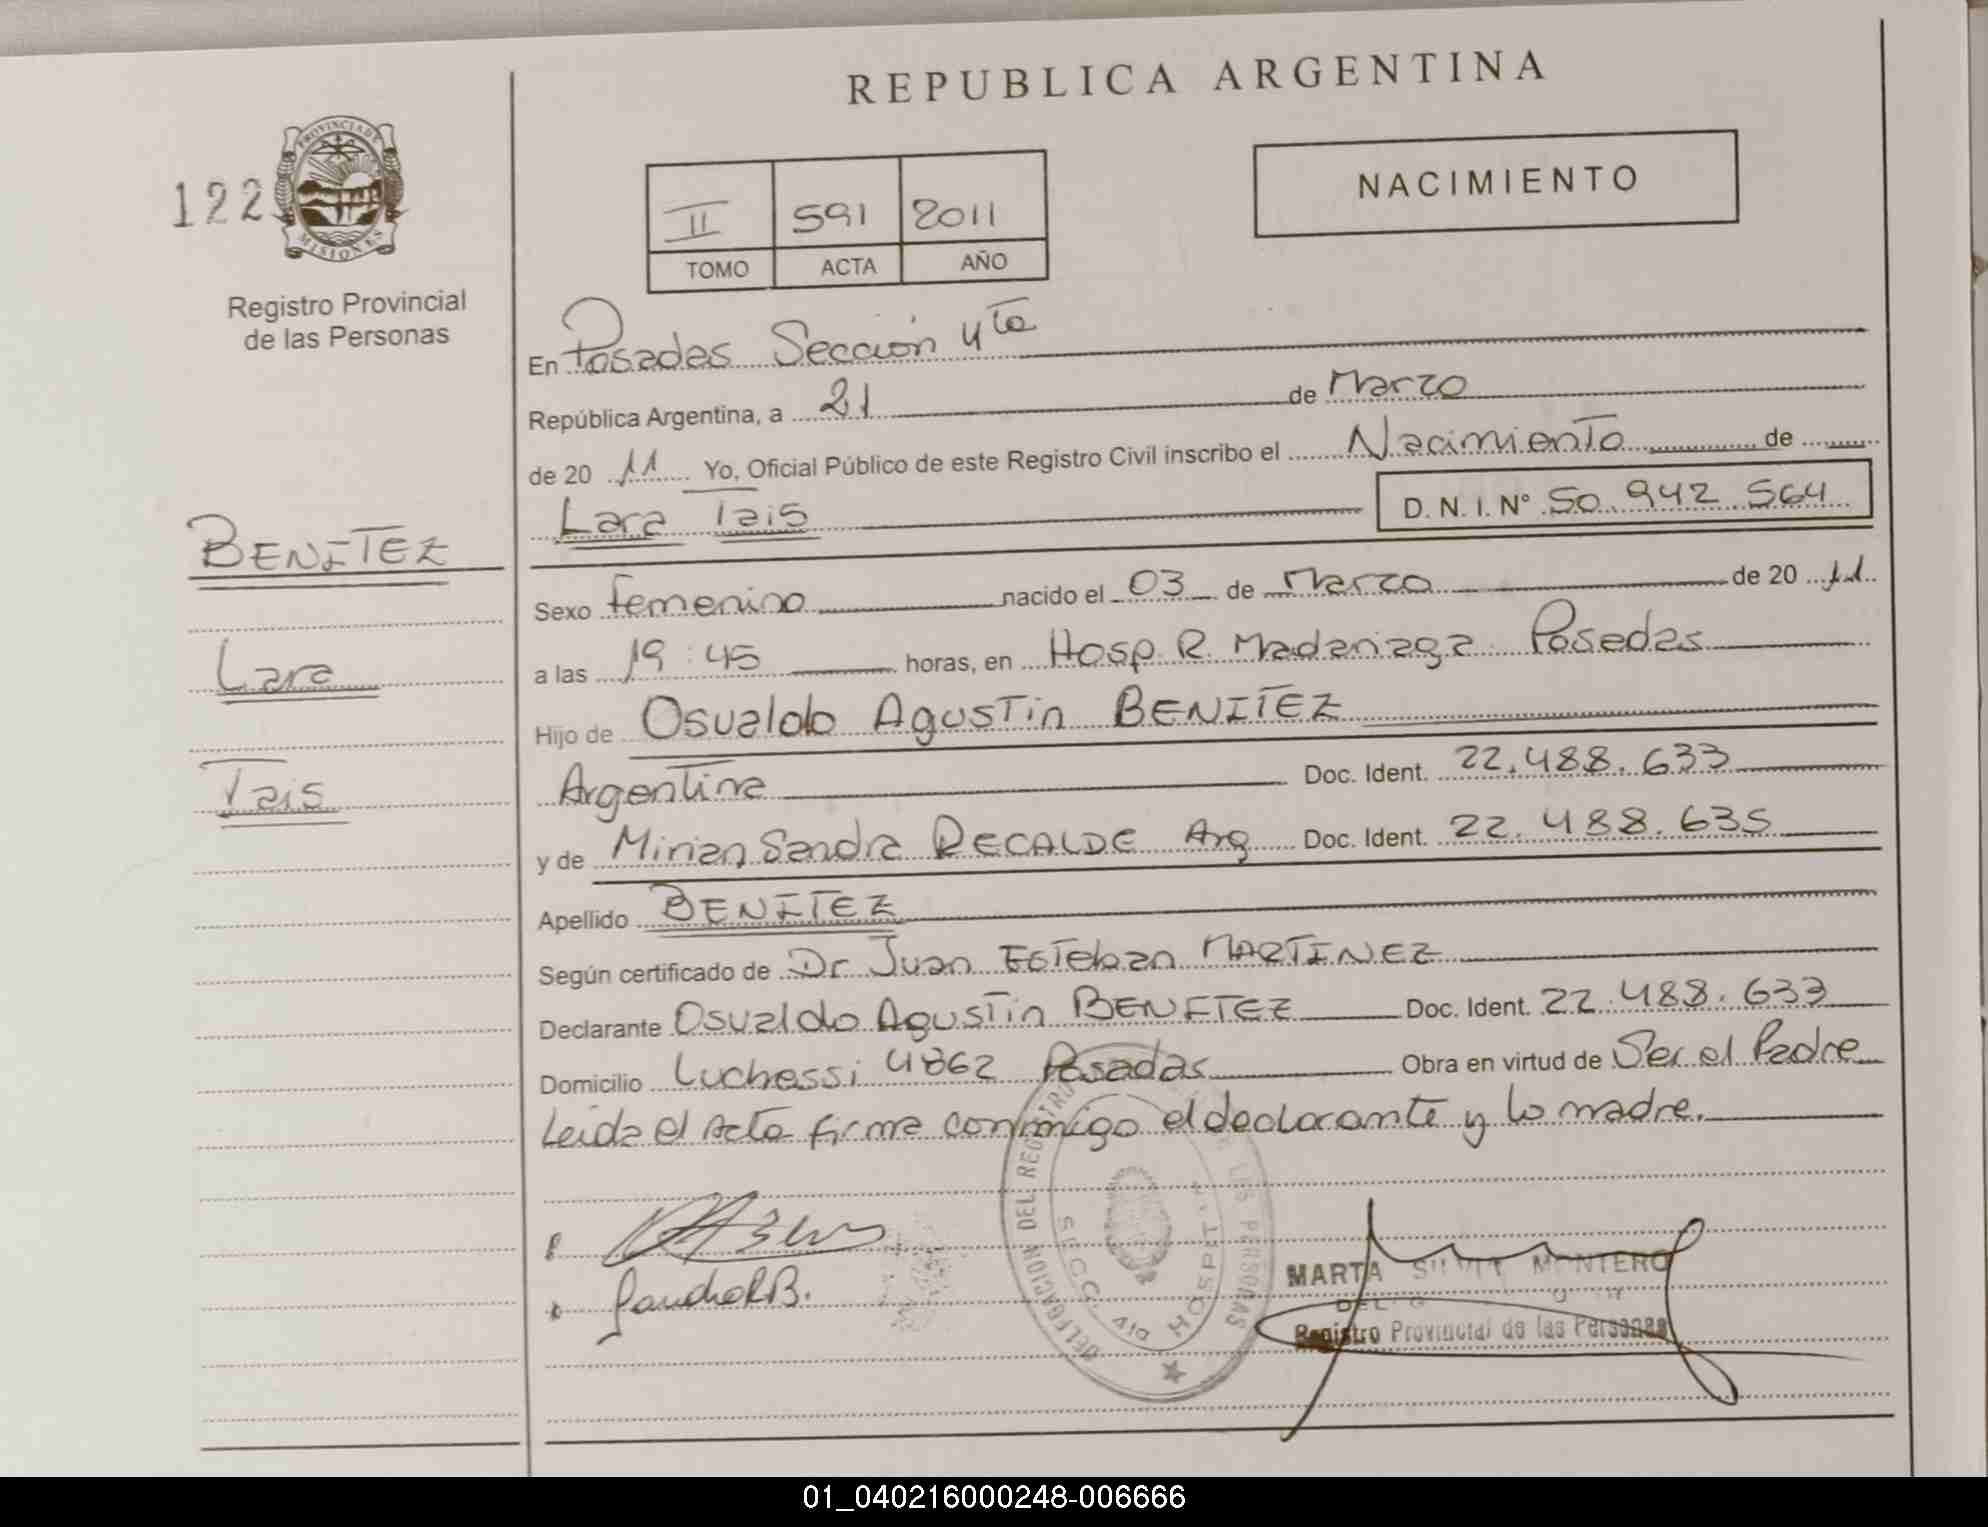 REPUBLICA ARGENTINA
122
PROVINCIA DE
MISIONES
Registro Provincial
de las Personas
NACIMIENTO
II 591 2011
TOMO ACTA AÑO
En Posadas Sección 4ta
República Argentina, a 21 de Marzo
de 20 11 Yo, Oficial Público de este Registro Civil inscribo el Nacimiento de
Lara Tais D. N. I. N° 50.942.564
BENITEZ
Lara
Tais
Sexo femenino nacido el 03 de Marzo de 20 11
a las 19:45 horas, en Hosp R. Madariaga Posadas
Hijo de Osvaldo Agustin BENITEZ
Argentina Doc. Ident. 22.488.633
y de Mirian Sandra RECALDE Arg Doc. Ident. 22.488.635
Apellido BENITEZ
Según certificado de Dr Juan Esteban MARTINEZ
Declarante Osvaldo Agustin BENITEZ Doc. Ident. 22.488.633
Domicilio Luchessi 4862 Posadas Obra en virtud de Ser el Padre
Leida el Acta firma conmigo el declarante y la madre.
DELEGACION DEL REGISTRO DE LAS PERSONAS
SECC. 4ta HOSPITAL
Sandra R B.
MARTA SILVIA MONTERO
Registro Provincial de las Personas
01_040216000248-006666